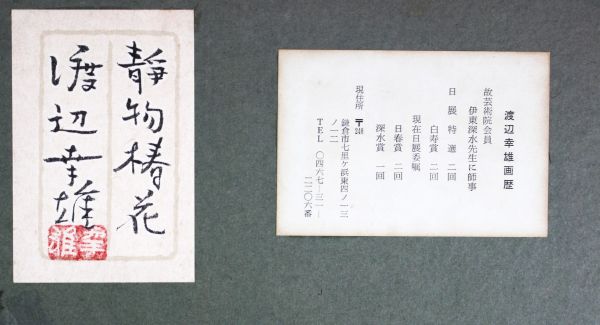 静物椿花
渡辺幸雄
幸雄
渡辺幸雄画歴
故芸術院会員
伊東深水先生に師事
日展特選 二回
白寿賞 二回
現在日展委嘱
日春賞 二回
深水賞 一回
現住所 〒248
鎌倉市七里ケ浜東四ノ一三
ノ一二
TEL 〇四六七―三一―
二二〇六番